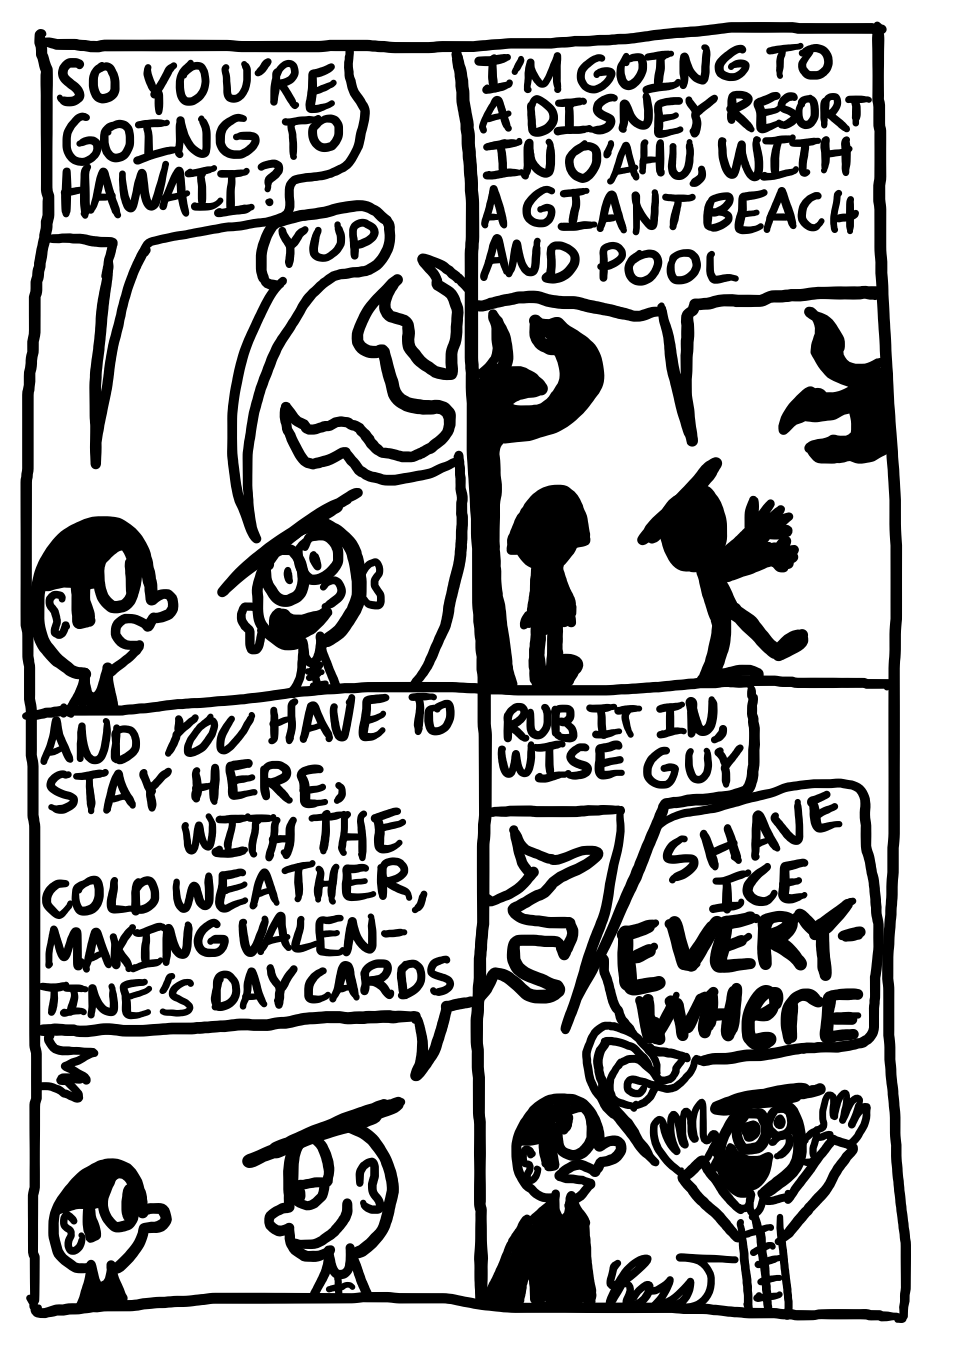 SO YOU'RE
GOING TO
HAWAII?
YUP
I'M GOING TO
A DISNEY RESORT
IN O'AHU, WITH
A GIANT BEACH
AND POOL
AND YOU HAVE TO
STAY HERE,
WITH THE
COLD WEATHER,
MAKING VALEN-
TINE'S DAY CARDS
RUB IT IN,
WISE GUY
SHAVE
ICE
EVERY-
WHERE